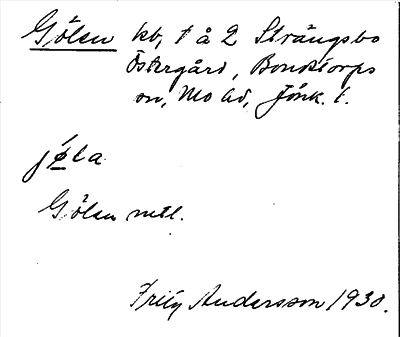 Gölen kb, t å 2 Strängsbo
Östergård, Bondstorps
sn, Mo hd, Jönk. l.
jø̀la
Gölen mtl.
Fritz Andersson 1930.